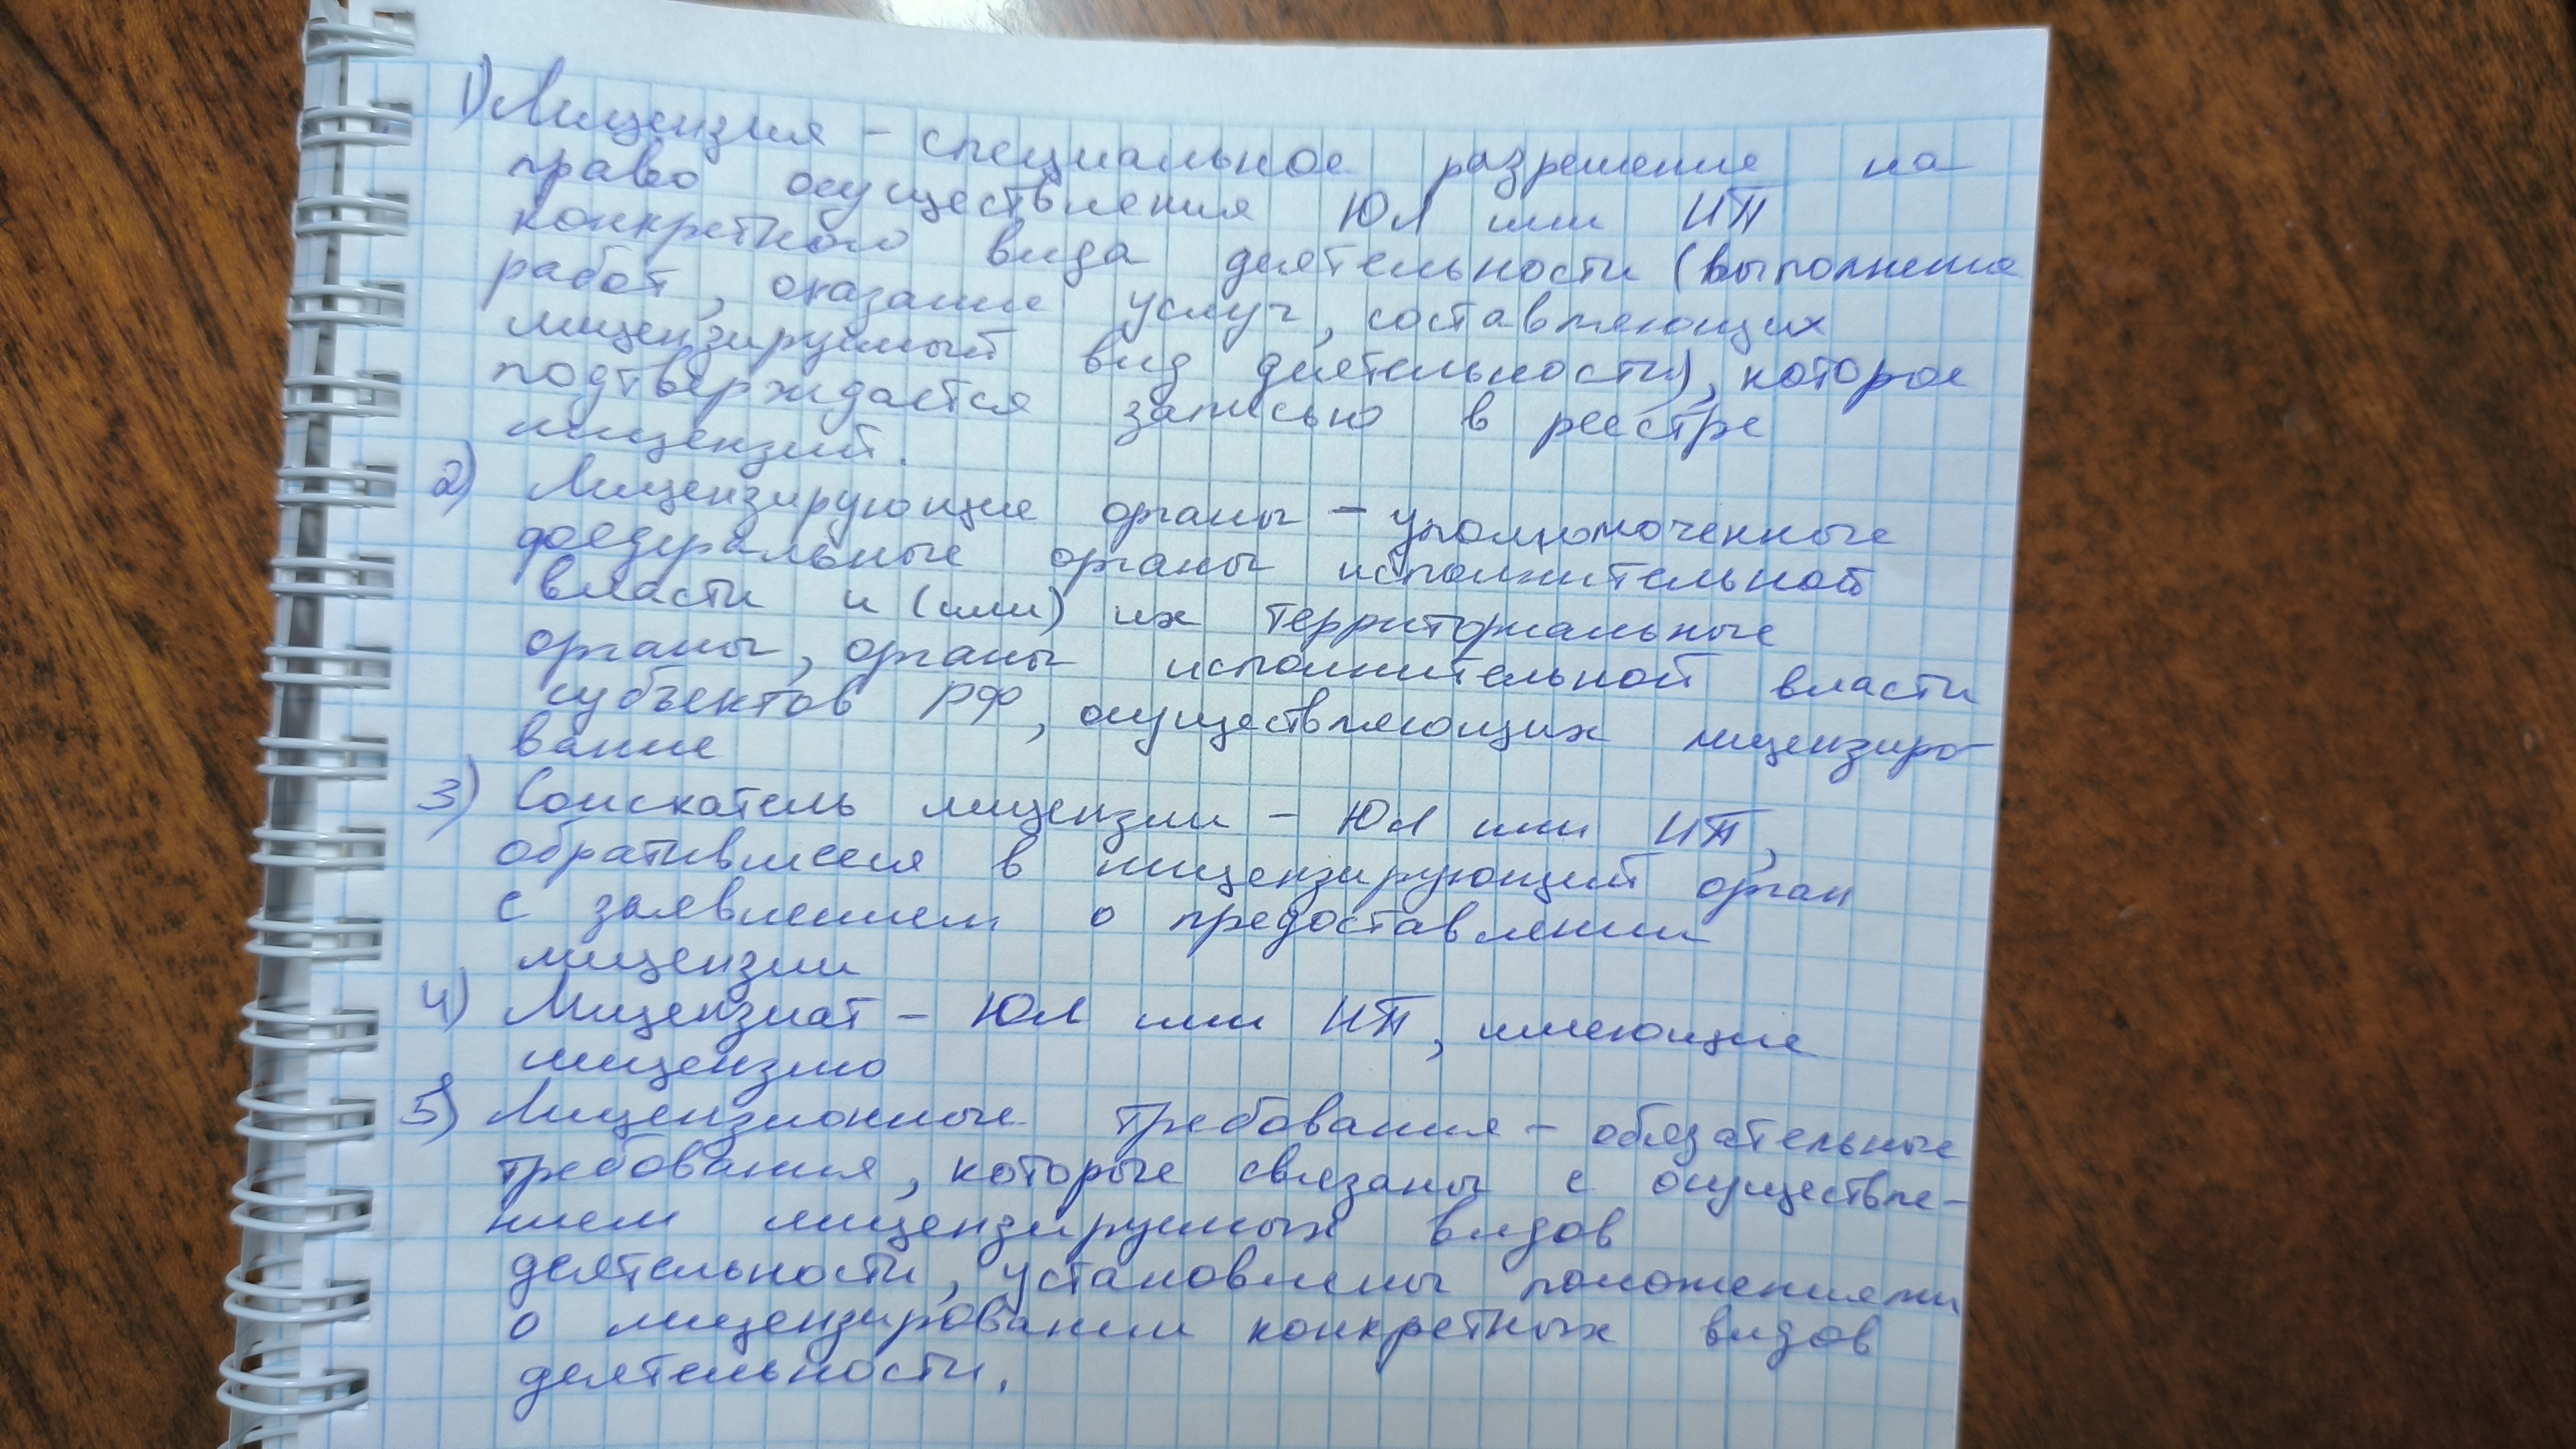 1) Лицензия – специальное разрешение на
право осуществления ЮЛ или ИП
конкретного вида деятельности (выполнение
работ, оказание услуг, составляющих
лицензируемый вид деятельности), которое
подтверждается записью в реестре
лицензий.
2) Лицензирующие органы – уполномоченные
федеральные органы исполнительной
власти и (или) их территориальные
органы, органы исполнительной власти
субъектов РФ, осуществляющих лицензиро-
вание
3) Соискатель лицензии – ЮЛ или ИП,
обратившиеся в лицензирующий орган
с заявлением о предоставлении
лицензии
4) Лицензиат – ЮЛ или ИП, имеющие
лицензию
5) Лицензионные требования – обязательные
требования, которые связаны с осуществле-
нием лицензируемых видов
деятельности, установлены положениями
о лицензировании конкретных видов
деятельности.